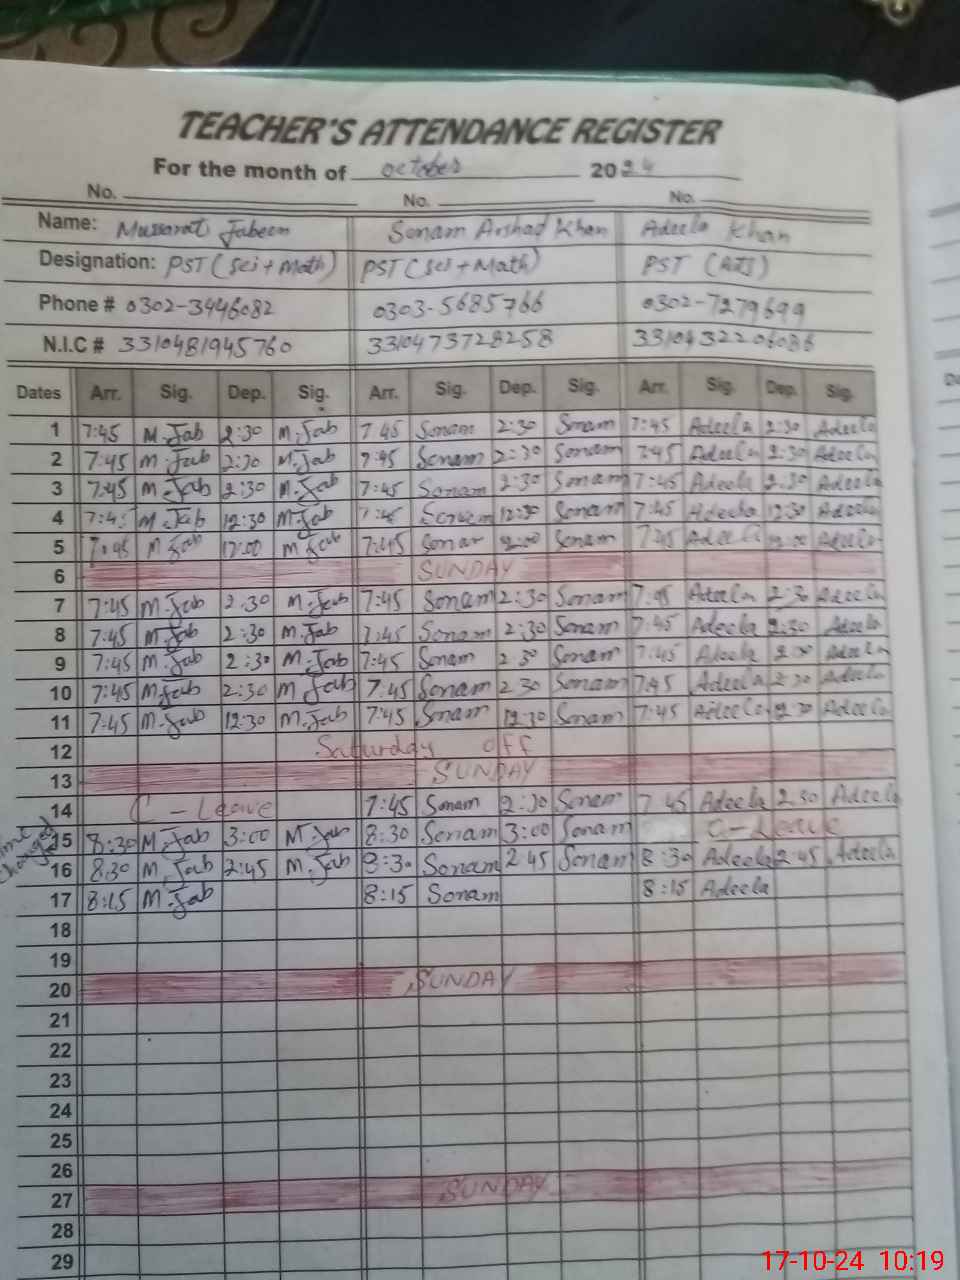 TEACHER'S ATTENDANCE REGISTER
For the month of october 2024
No. No. No.
Name: Mussarat Jabeen Sonam Arshad Khan Adeela Khan
Designation: PST (Sci + Math) PST (Sci + Math) PST (Arts)
Phone # 0302-3446082 0303-5685766 0302-7279699
N.I.C # 3310481945760 3310473728258 3310432206036
Dates Arr. Sig. Dep. Sig. Arr. Sig. Dep. Sig. Arr. Sig. Dep. Sig.
1 7:45 M.Jab 2:30 M.Jab 7:45 Sonam 2:30 Sonam 7:45 Adeela 2:30 Adeela
2 7:45 M.Jab 2:30 M.Jab 7:45 Sonam 2:30 Sonam 7:45 Adeela 2:30 Adeela
3 7:45 M.Jab 2:30 M.Jab 7:45 Sonam 2:30 Sonam 7:45 Adeela 2:30 Adeela
4 7:45 M.Jab 12:30 M.Jab 7:45 Sonam 12:30 Sonam 7:45 Adeela 12:30 Adeela
5 7:45 M.Jab M.Jab 7:45 Sonam Sonam 7:45 Adeela Adeela
6 SUNDAY
7 7:45 M.Jab 2:30 M.Jab 7:45 Sonam 2:30 Sonam 7:45 Adeela 2:30 Adeela
8 7:45 M.Jab 2:30 M.Jab 7:45 Sonam 2:30 Sonam 7:45 Adeela 2:30 Adeela
9 7:45 M.Jab 2:30 M.Jab 7:45 Sonam 2:30 Sonam 7:45 Adeela 2:30 Adeela
10 7:45 M.Jab 2:30 M.Jab 7:45 Sonam 2:30 Sonam 7:45 Adeela 2:30 Adeela
11 7:45 M.Jab 12:30 M.Jab 7:45 Sonam 12:30 Sonam 7:45 Adeela 12:30 Adeela
12 Saturday off
13 SUNDAY
14 C-Leave 7:45 Sonam 2:30 Sonam 7:45 Adeela 2:30 Adeela
changed 15 8:30 M.Jab 3:00 M.Jab 8:30 Sonam 3:00 Sonam C-Leave
16 8:30 M.Jab 2:45 M.Jab 8:30 Sonam 2:45 Sonam 8:30 Adeela 2:45 Adeela
17 8:15 M.Jab 8:15 Sonam 8:15 Adeela
18
19
20 SUNDAY
21
22
23
24
25
26
27 SUNDAY
28
29
17-10-24 10:19